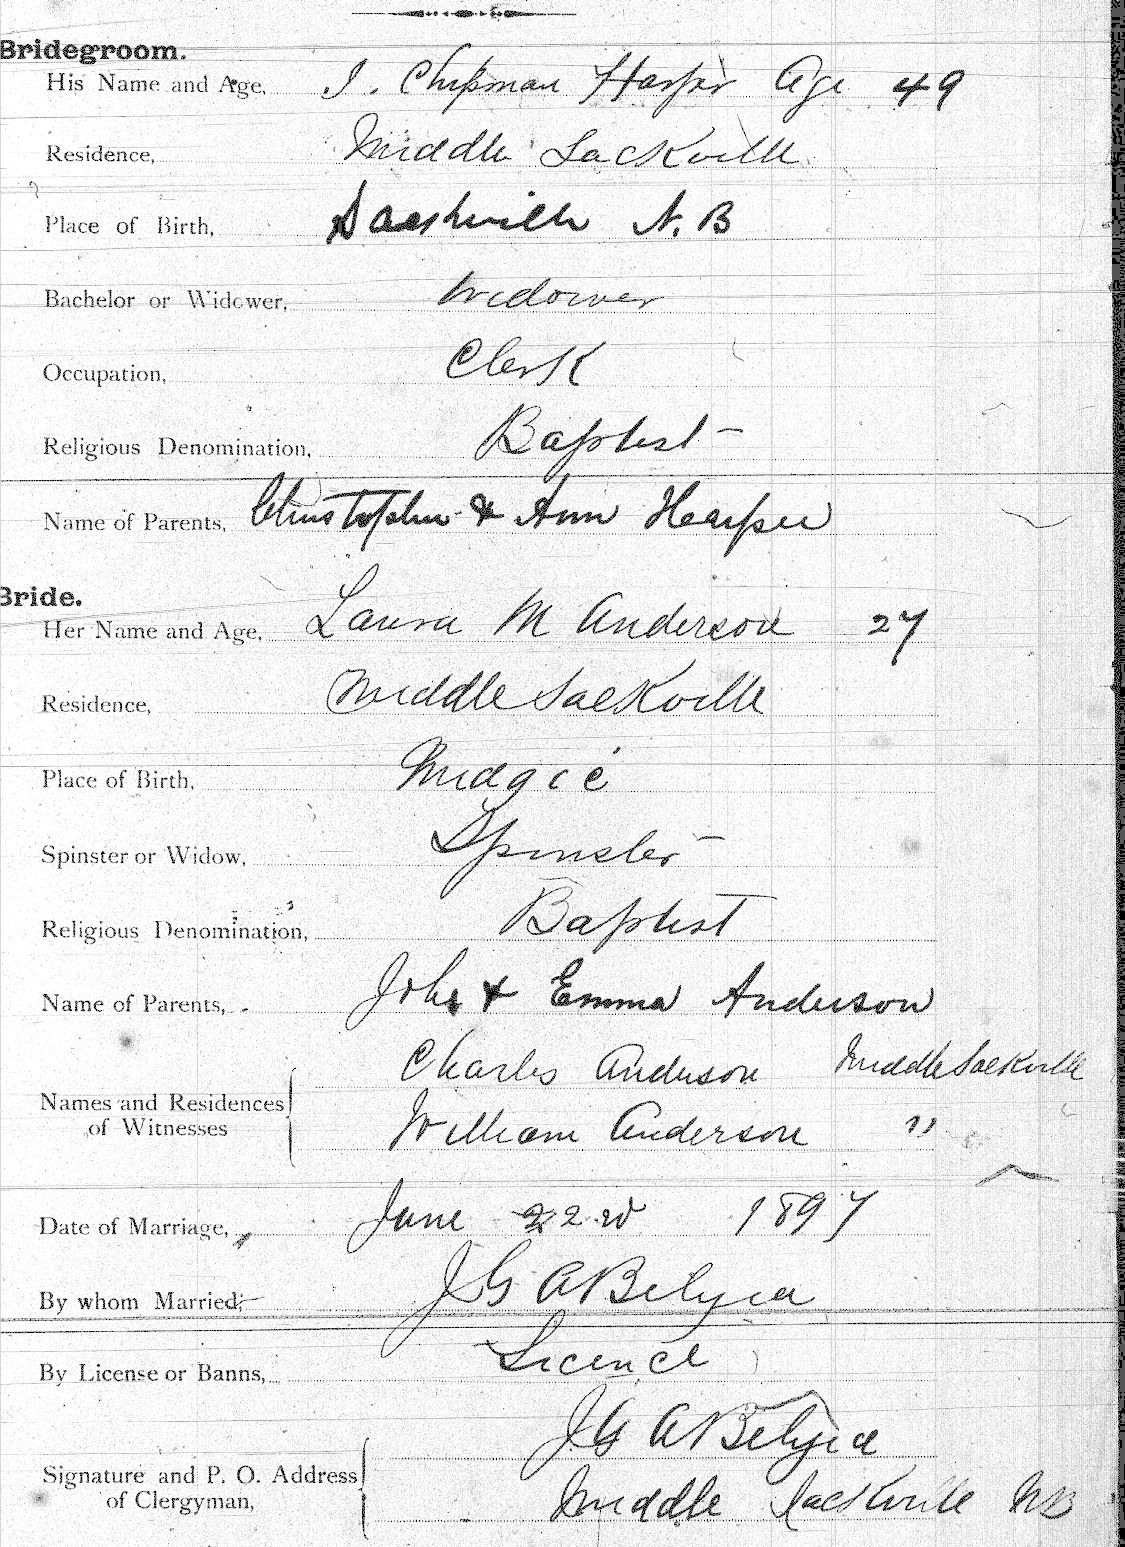 Bridegroom.
His Name and Age, I. Chipman Harper Age 49
Residence, Middle Sackville
Place of Birth, Sackville N.B
Bachelor or Widower, Widower
Occupation, Clerk
Religious Denomination, Baptist
Name of Parents, Christopher & Ann Harper
Bride.
Her Name and Age, Laura M Anderson 27
Residence, Middle Sackville
Place of Birth, Midgic
Spinster or Widow, Spinster
Religious Denomination, Baptist
Name of Parents, John & Emma Anderson
Charles Anderson Middle Sackville
Names and Residences
of Witnesses
William Anderson "
Date of Marriage, June 22nd 1897
By whom Married, J G A Belyea
By License or Banns, Licence
J G A Belyea
Signature and P. O. Address
of Clergyman,
Middle Sackville NB